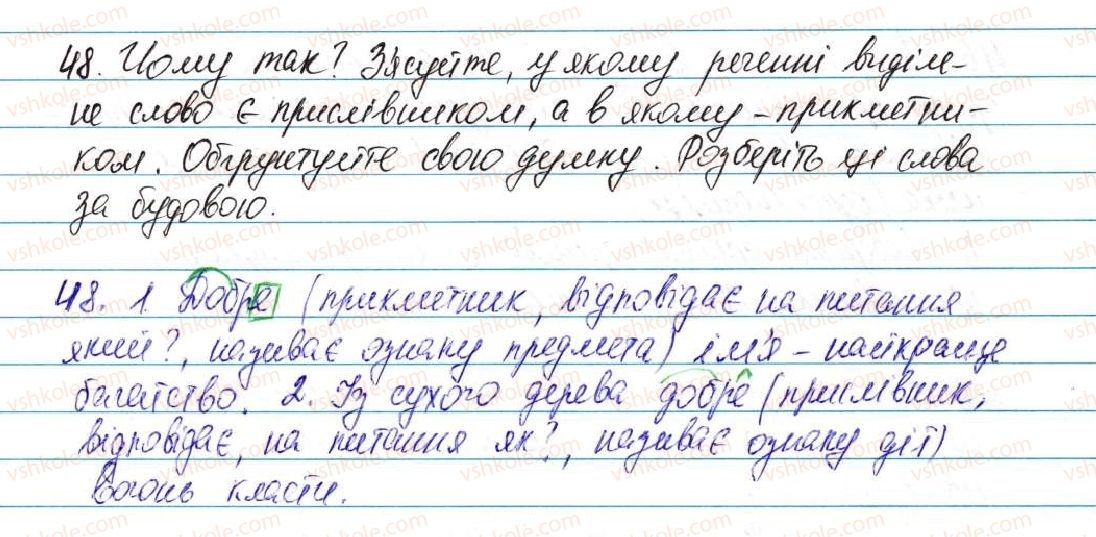 48. Чому так? З'ясуйте, у якому реченні виділе-
не слово є прислівником, а в якому - прикметни-
ком. Обґрунтуйте свою думку. Розберіть ці слова
за будовою.
48. 1. Добре (прикметник, відповідає на питання
який?, називає ознаку предмета) ім'я - найкраще
багатство. 2. Із сухого дерева добре (прислівник,
відповідає, на питання як?, називає ознаку дії)
вогонь класти.